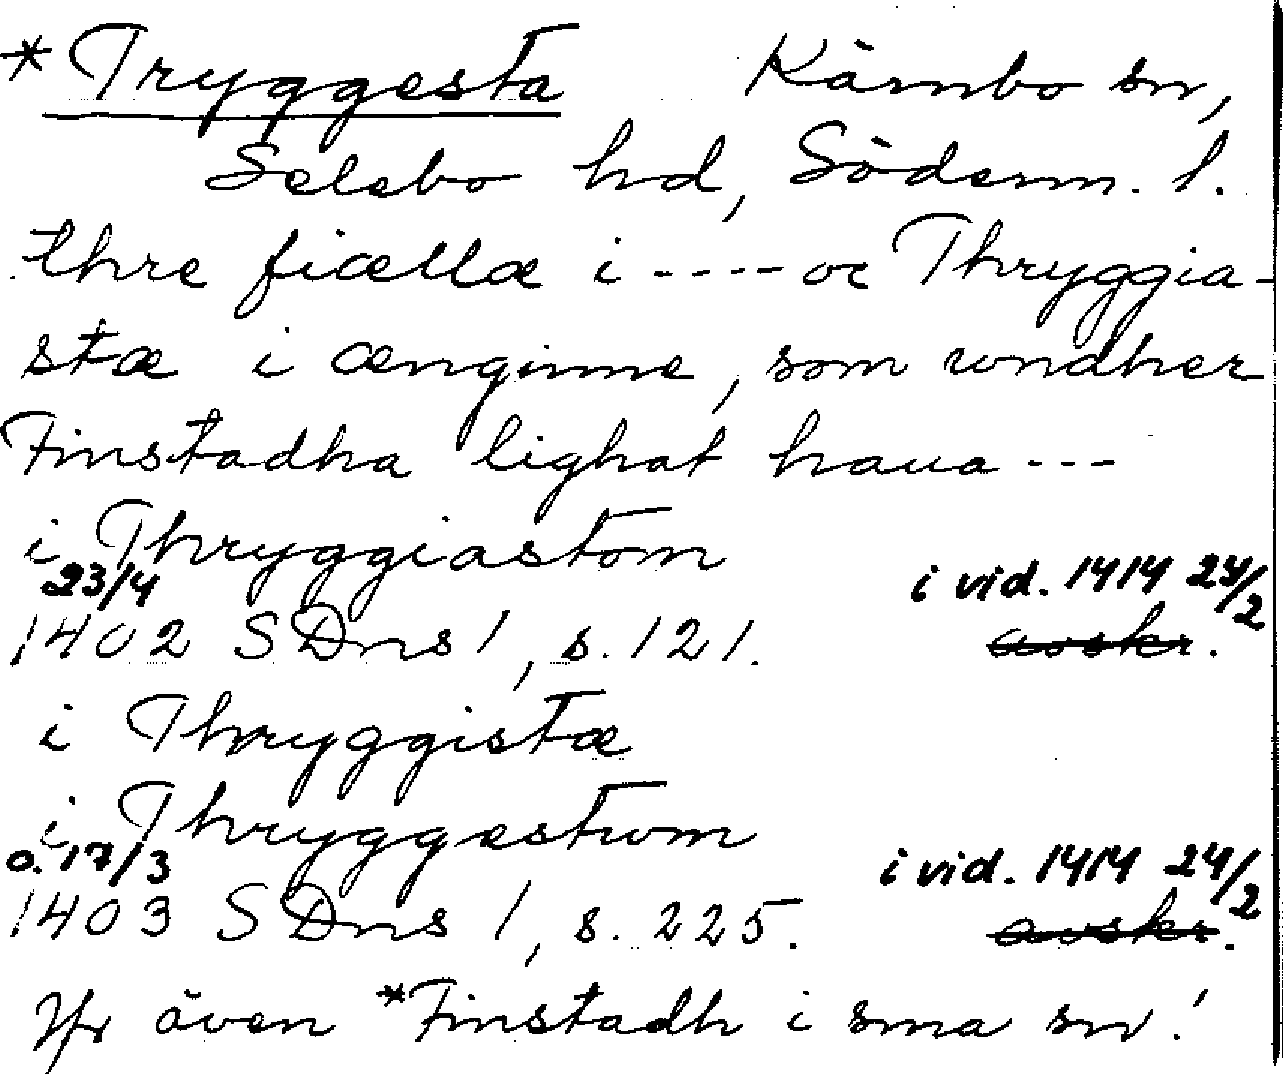 *Tryggesta Kärnbo sn,
Selebo hd, Söderm. l.
thre fiællæ i ---- oc Thryggia-
stæ i ænginne, som wndher
Finstadha lighat haua ---
i Thryggiastom
23/4 i vid. 1414 24/2
1402 SDns 1, s. 121. avskr.
i Thryggistæ
i Thryggestwm
o. 17/3 i vid. 1414 24/2
1403 SDns 1, s. 225. avskr.
Jfr även *Finstadh i sma sn!